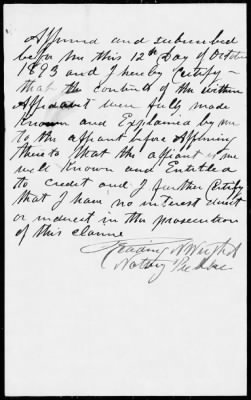 Affirmed and subscribed
before me this 12th Day of October
1893 and I hereby Certify
that the contents of the within
Affidavit were fully made
Known and Explained by me
to the affiant before affirming
thereto that the affiant is
well Known and Entitled
to credit and I further Certify
that I have no interest direct
or indirect in the prosecution
of this claim
Wright
Notary Public